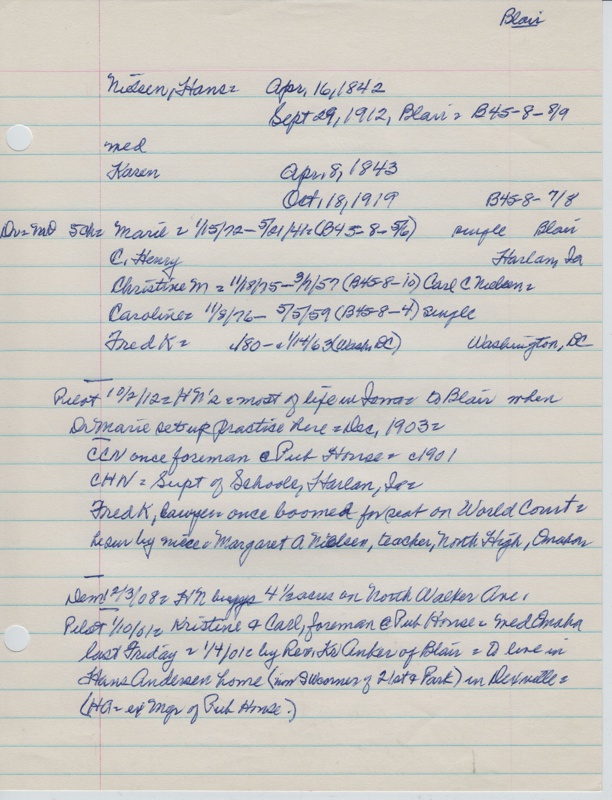 Blair
Nielsen, Hans = Apr. 16, 1842
Sept 29, 1912, Blair = B45-8-8/9
med
Karen Apr. 8, 1843
Oct. 18, 1919 B45-8-7/8
5 ch = Marie = 1/15/72 - 5/21/41 = (B45-8-5/6) single Blair
C. Henry Harlan, Ia
Christine M = 11/18/75 - 3/7/57 (B45-8-10) Carl C Nielsen =
Caroline = 11/8/76 - 5/5/59 (B45-8-4) single
Fred K = c/80 - c 1/14/63 (Wash, DC) Washington, DC
Pilot 10/2/12 = HN's = most of life in Iowa = to Blair when
Dr Marie set up practise here = Dec, 1903 =
CCN once foreman @ Pub House = c1901
CHN = Supt of Schools, Harlan, Ia =
Fred K, lawyer = once boomed for seat on World Court =
by niece = Margaret A Nielsen, teacher, North High, Omaha
Dem 12/3/08 = HN buys 4 1/2 acres on North Walker Ave.
Pilot 1/10/01 = Kristine & Carl, foreman @ Pub House = med Omaha
last Friday = 1/4/01 = by Rev. Kr Anker of Blair = to live in
Hans Andersen home (now SW corner of 21st & Park) in Dexville =
(HA = ex Mgr of Pub House.)